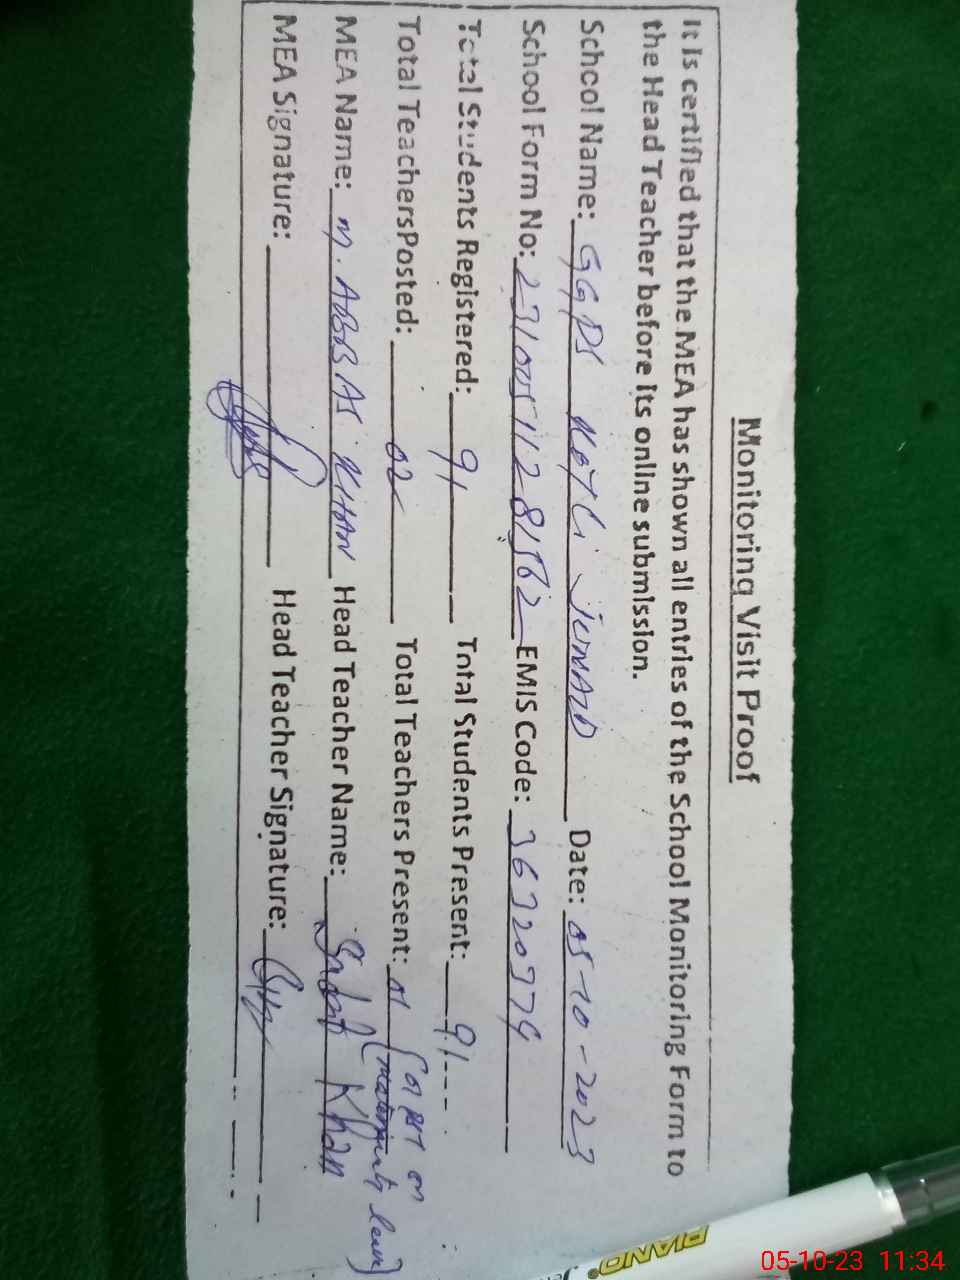 Monitoring Visit Proof
It is certified that the MEA has shown all entries of the School Monitoring Form to
the Head Teacher before its online submission.
School Name: GGPS KOTLI JUMAID Date: 05-10-2023
School Form No: EMIS Code: 36720774
Total Students Registered: 91 Total Students Present: 91
Total TeachersPosted: 02 Total Teachers Present: 01 (01 PST on maternity leave)
MEA Name: M. ABBAS KHAN Head Teacher Name: Khan
MEA Signature: Head Teacher Signature:
PIANO
05-10-23 11:34